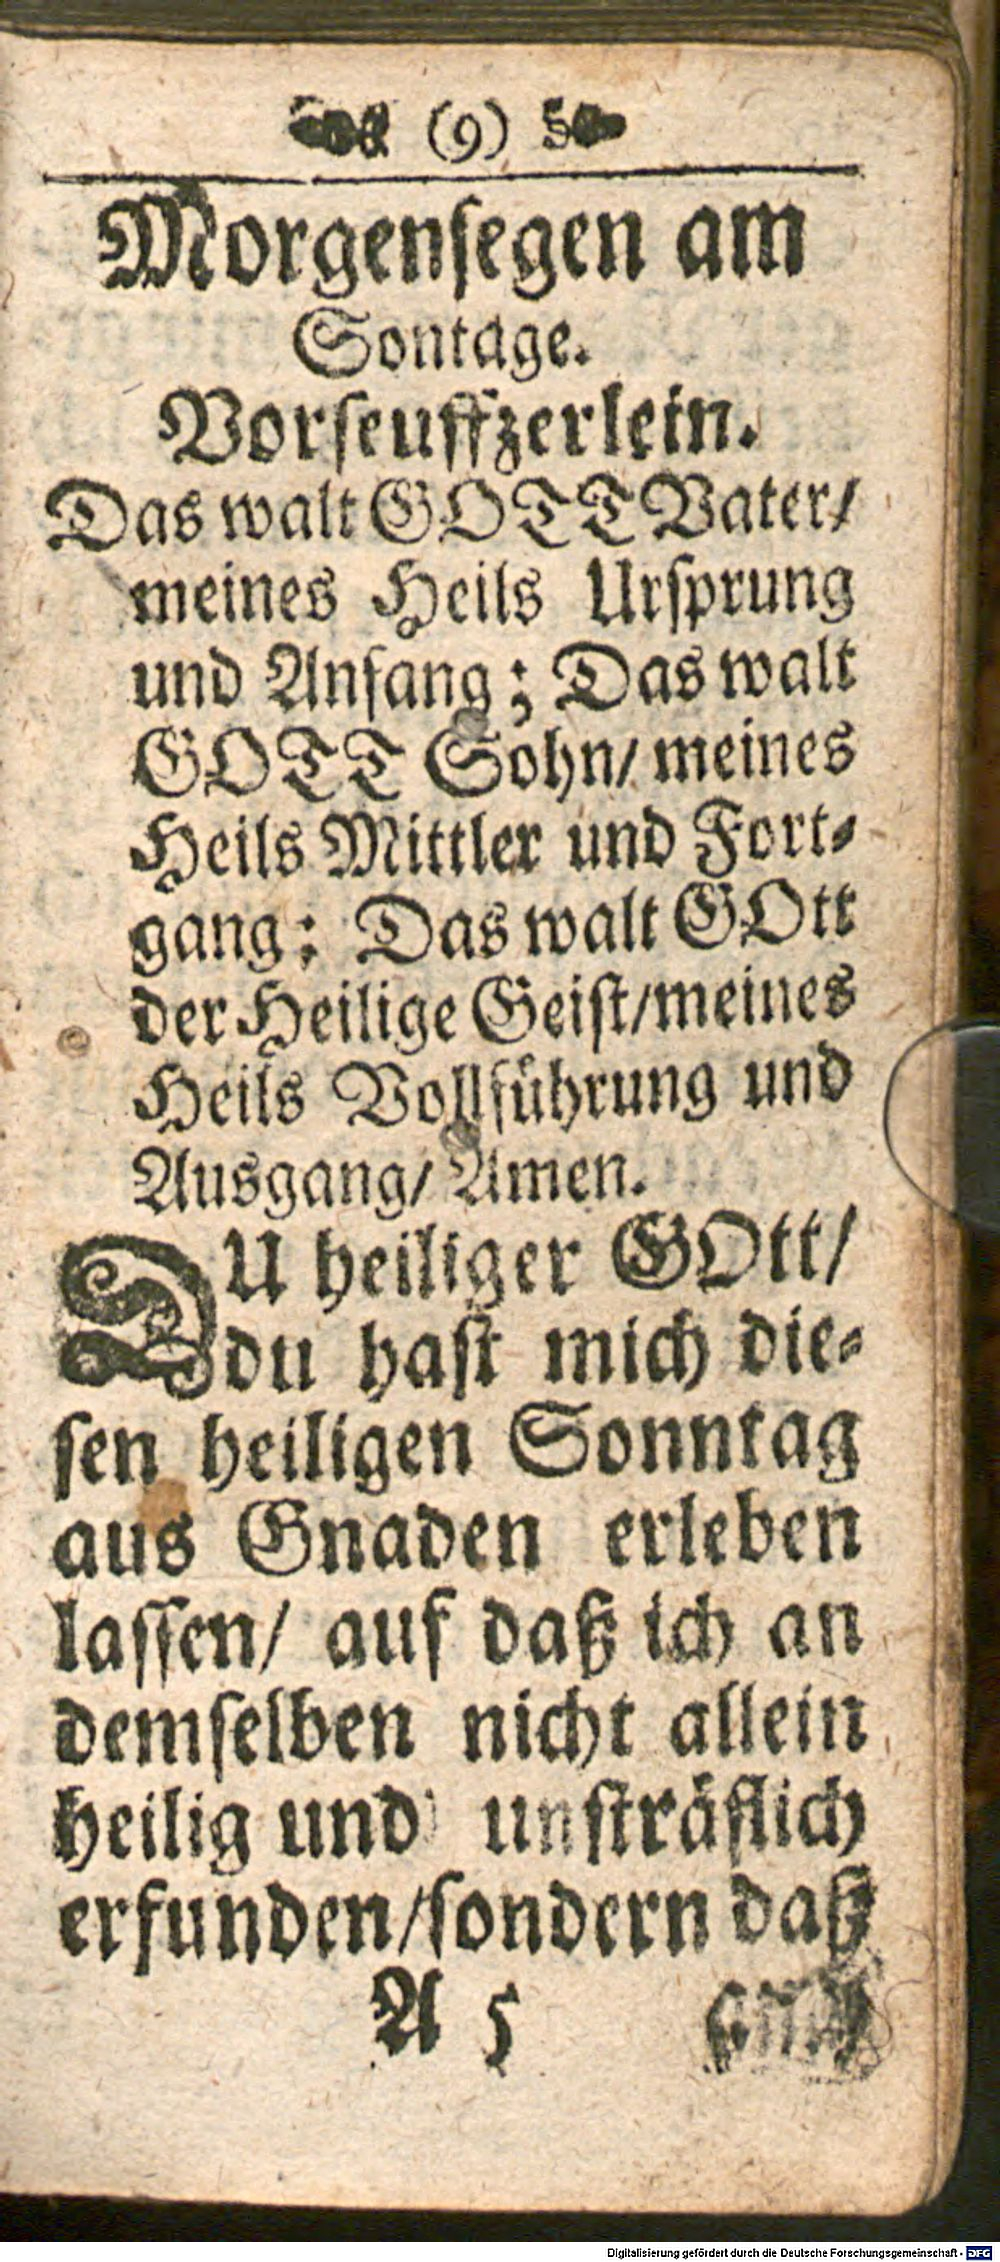 (9)
Morgenſegen am
Sontage.
Vorſeuffzerlein.
Das walt GOTT Vater/
meines Heils Urſprung
und Anfang; Das walt
GOTT Sohn/ meines
Heils Mittler und Fort⸗
gang; Das walt GOtt
der Heilige Geiſt/meines
Heils Vollführung und
Ausgang/ Amen.
DU heiliger GOtt/
du haſt mich die⸗
ſen heiligen Sonntag
aus Gnaden erleben
laſſen/ auf daß ich an
demſelben nicht allein
heilig und unſträflich
erfunden/ſondern daß
A 5
Digitalisierung gefördert durch die Deutsche Forschungsgemeinschaft - DFG